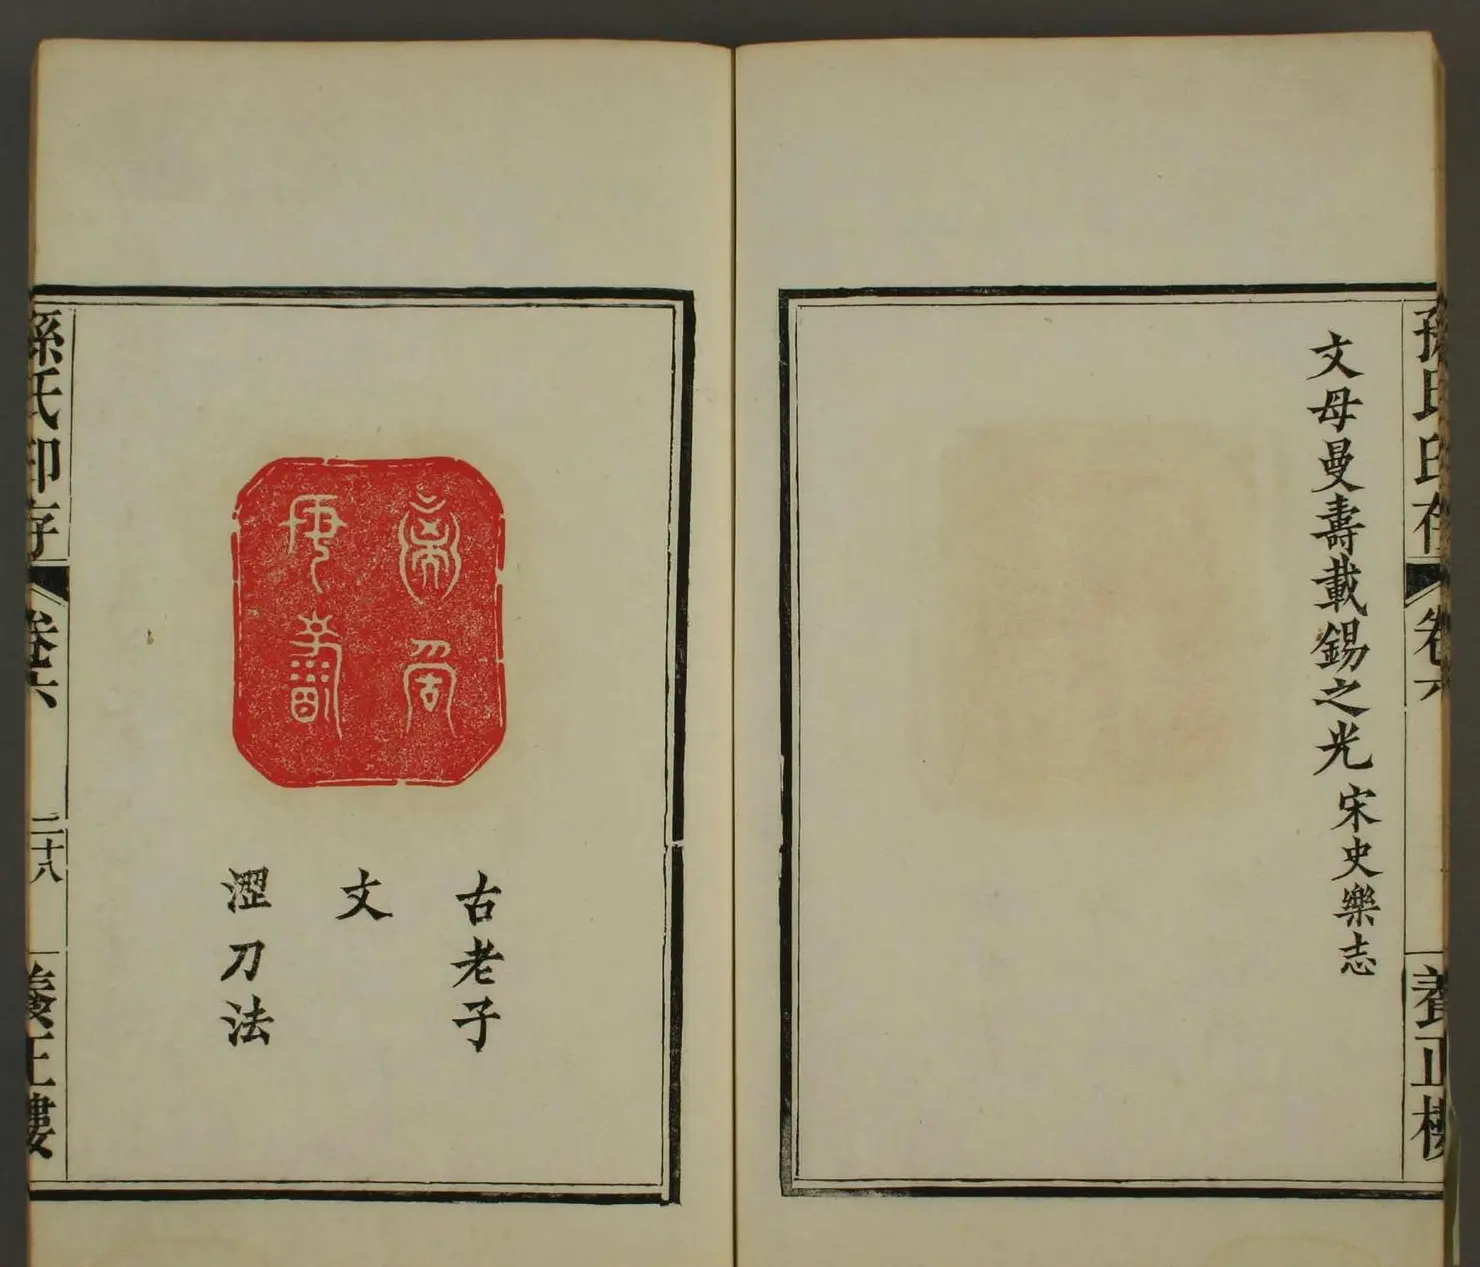 孫氏印存
卷六
養正樓
文母曼壽載錫之光 宋史樂志
古老子
文
澀刀法
孫氏印存
卷六
二十八
養正樓